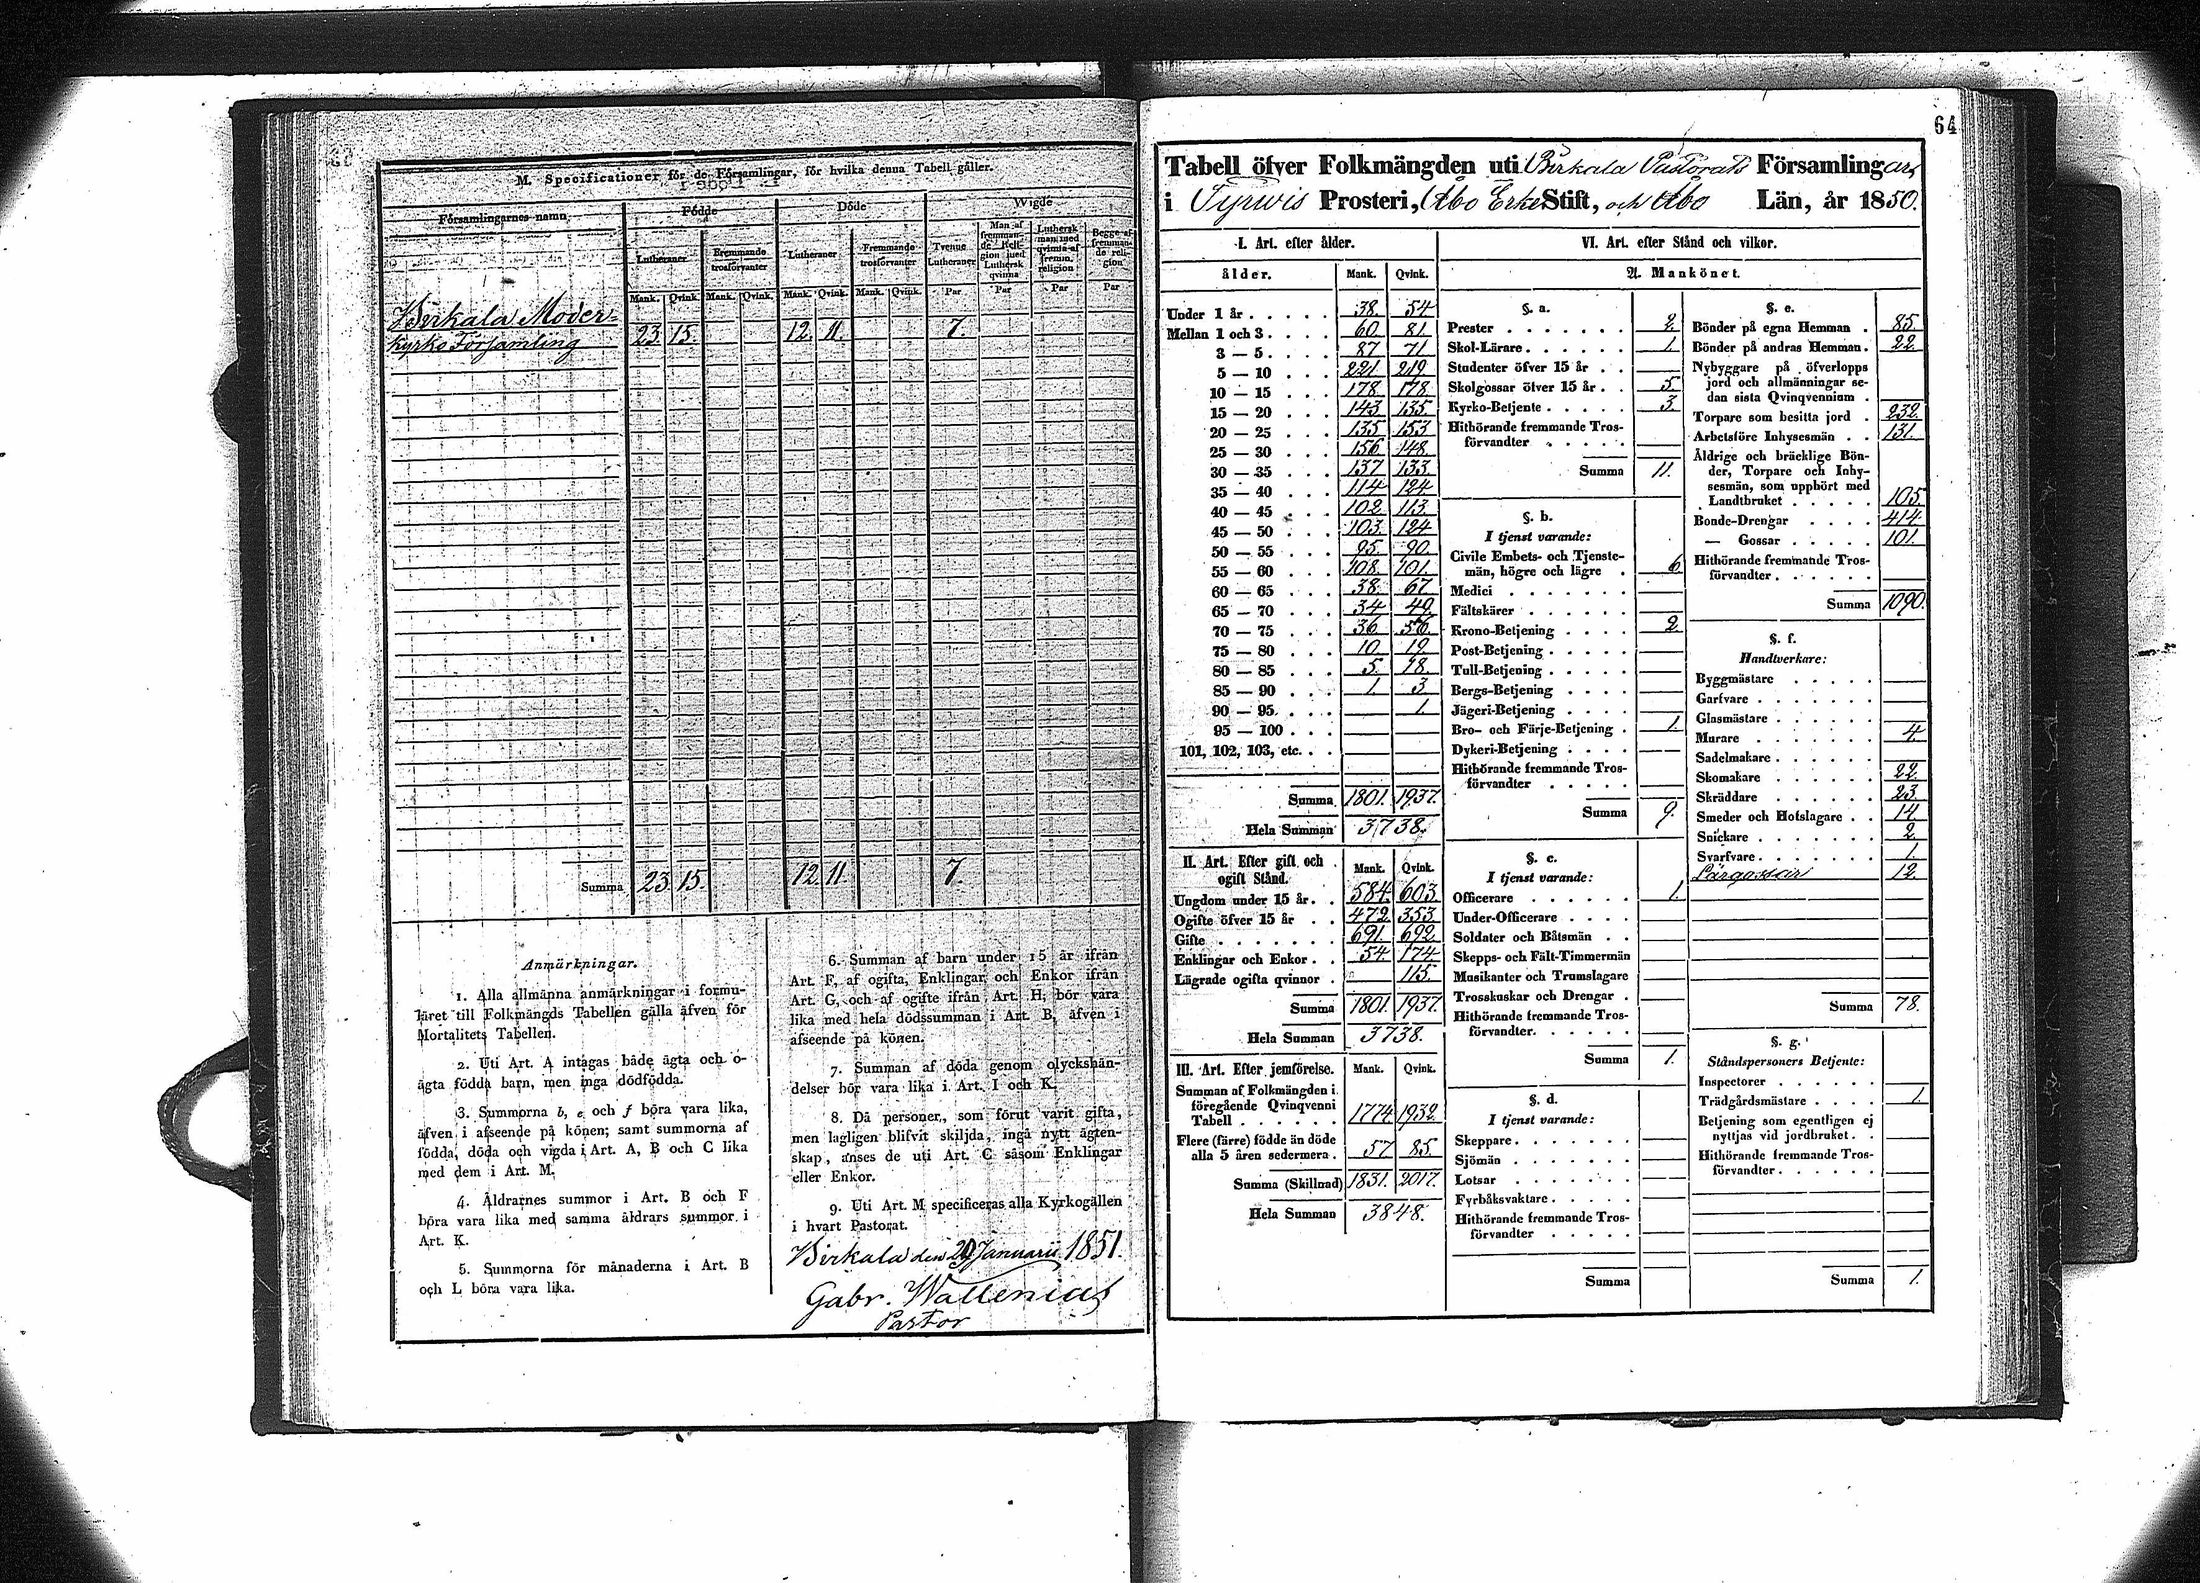 M. Specificationer för de Församlingar, för hvilka denna Tabell gäller.
Församlingarnes namn. Födde Döde Wigde
Lutheraner Fremmande trosförvanter Lutheraner Fremmande trosförvanter Tvenne Lutheraner Man af fremmande Religion med Luthersk qvinna Luthersk man med qvinna af fremm. religion Begge af fremmande religion
Mank. Qvink. Mank. Qvink. Mank. Qvink. Mank. Qvink. Par Par Par Par
Birkala Moder-
kyrko Församling 23. 15. 12. 11. 7.
Summa 23. 15. 12. 11. 7.
Anmärkningar.
1. Alla allmänna anmärkningar i formu-
läret till Folkmängds Tabellen gälla äfven för
Mortalitets Tabellen.
2. Uti Art. A intagas både ägta och o-
ägta födda barn, men inga dödfödda.
3. Summorna b, e och f böra vara lika,
äfven i afseende på könen; samt summorna af
födda, döda och vigda i Art. A, B och C lika
med dem i Art. M.
4. Åldrarnes summor i Art. B och F
böra vara lika med samma åldrars summor i
Art. K.
5. Summorna för månaderna i Art. B
och L böra vara lika.
6. Summan af barn under 15 år ifrån
Art. F, af ogifta, Enklingar och Enkor ifrån
Art. G, och af ogifte ifrån Art. H, bör vara
lika med hela dödssumman i Art. B, äfven i
afseende på könen.
7. Summan af döda genom olyckshän-
delser bör vara lika i Art. I och K.
8. Då personer, som förut varit gifta,
men lagligen blifvit skiljda, ingå nytt ägten-
skap, anses de uti Art. C såsom Enklingar
eller Enkor.
9. Uti Art. M specificeras alla Kyrkogällen
i hvart Pastorat.
Birkala den Januarii 1851.
Gabr. Wallenius
Pastor
64
Tabell öfver Folkmängden uti Birkala Pastorats Församlingar
i Tyrwis Prosteri, Åbo Erke Stift, och Åbo Län, år 1850.
I. Art. efter ålder.
ålder. Mank. Qvink.
Under 1 år 38. 54
Mellan 1 och 3 60. 81.
3 — 5 87. 71
5 — 10 221. 219.
10 — 15 178. 178.
15 — 20 143. 135.
20 — 25 135. 153
25 — 30 156. 148.
30 — 35 137. 133.
35 — 40 114. 124.
40 — 45 102. 113.
45 — 50 103. 124
50 — 55 95. 90.
55 — 60 108. 101.
60 — 65 38. 67.
65 — 70 34. 49.
70 — 75 36
75 — 80 10.
80 — 85 5. 18.
85 — 90 1. 3.
90 — 95 1.
95 — 100
101, 102, 103, etc.
Summa 1801. 1937.
Hela Summan 3738.
II. Art. Efter gift och ogift Stånd. Mank. Qvink.
Ungdom under 15 år 584. 603.
Ogifte öfver 15 år 472. 353.
Gifte 691. 692.
Enklingar och Enkor 54. 174.
Lägrade ogifta qvinnor 115.
Summa 1801. 1937.
Hela Summan 3738.
III. Art. Efter jemförelse. Mank. Qvink.
Summan af Folkmängden i
föregående Qvinqvenni
Tabell 1774. 1932.
Flere (färre) födde än döde
alla 5 åren sedermera 57. 85.
Summa (Skillnad) 1831. 2017.
Hela Summan 3848.
VI. Art. efter Stånd och vilkor.
A. Mankönet.
§. a.
Prester 2.
Skol-Lärare 1.
Studenter öfver 15 år
Skolgossar öfver 15 år 5.
Kyrko-Betjente 3.
Hithörande fremmande Tros-
förvandter
Summa 11.
§. b.
I tjenst varande:
Civile Embets- och Tjenste-
män, högre och lägre 6.
Medici
Fältskärer
Krono-Betjening 2.
Post-Betjening
Tull-Betjening
Bergs-Betjening
Jägeri-Betjening
Bro- och Färje-Betjening 1.
Dykeri-Betjening
Hithörande fremmande Tros-
förvandter
Summa 9.
§. c.
I tjenst varande:
Officerare 1.
Under-Officerare
Soldater och Båtsmän
Skepps- och Fält-Timmermän
Musikanter och Trumslagare
Trosskuskar och Drengar
Hithörande fremmande Tros-
förvandter
Summa 1.
§. d.
I tjenst varande:
Skeppare
Sjömän
Lotsar
Fyrbåksvaktare
Hithörande fremmande Tros-
förvandter
Summa
§. e.
Bönder på egna Hemman 85.
Bönder på andras Hemman 22.
Nybyggare på öfverlopps
jord och allmänningar se-
dan sista Qvinqvennium
Torpare som besitta jord 232.
Arbetsföre Inhysesmän 131.
Åldrige och bräcklige Bön-
der, Torpare och Inhy-
sesmän, som upphört med
Landtbruket 105.
Bonde-Drengar 414.
— Gossar 101.
Hithörande fremmande Tros-
förvandter
Summa 1090.
§. f.
Handtverkare:
Byggmästare
Garfvare
Glasmästare
Murare 4.
Sadelmakare
Skomakare 22.
Skräddare 23.
Smeder och Hofslagare 14.
Snickare 2.
Svarfvare 1.
Lärgossar 12.
Summa 78.
§. g.
Ståndspersoners Betjente:
Inspectorer
Trädgårdsmästare 1.
Betjening som egentligen ej
nyttjas vid jordbruket
Hithörande fremmande Tros-
förvandter
Summa 1.